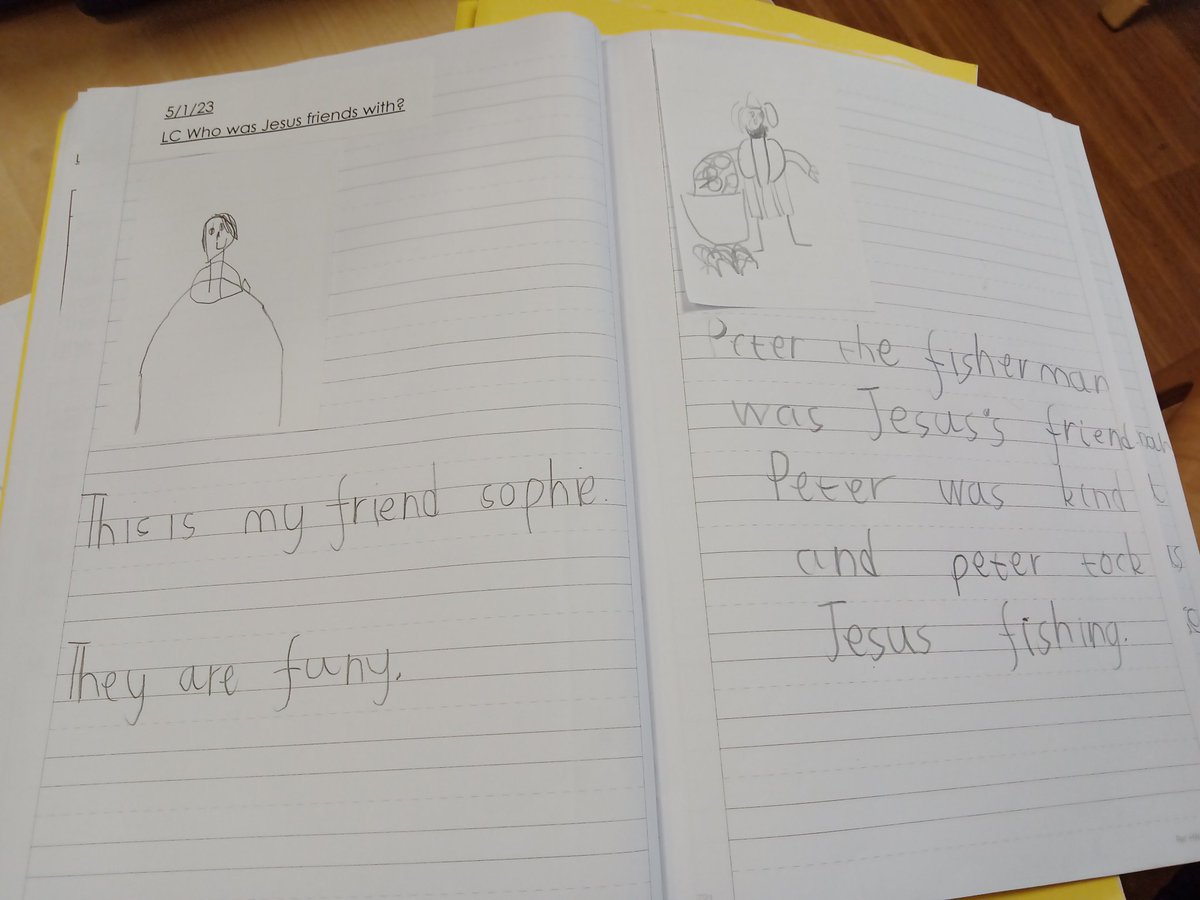 5/1/23
LC Who was Jesus friends with?
This is my friend sophie.
They are funy.
Peter the fisherman
was Jesus's friend
Peter was kind
and peter tock
Jesus fishing.